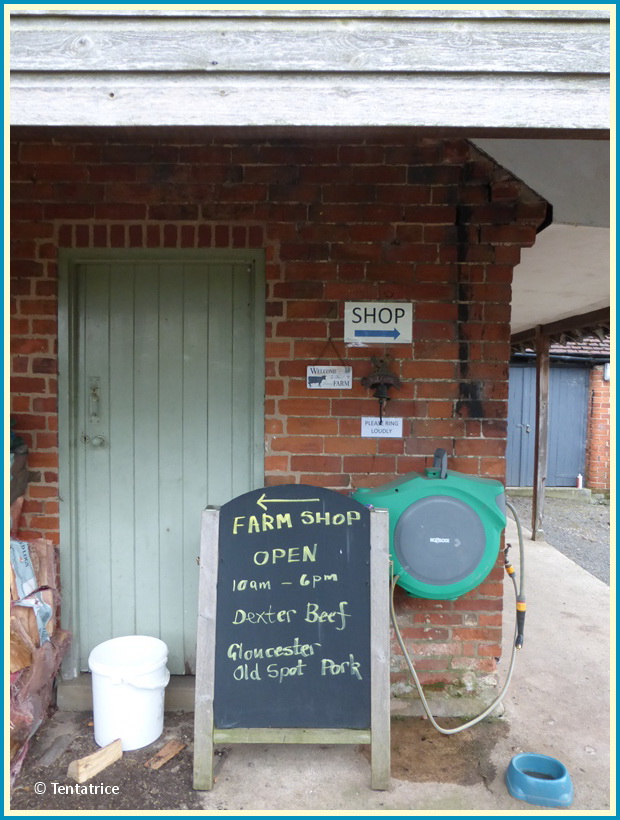 SHOP
WELCOME
FARM
PLEASE RING
LOUDLY
FARM SHOP
OPEN
10am - 6pm
Dexter Beef
Gloucester
Old Spot Pork
© Tentatrice